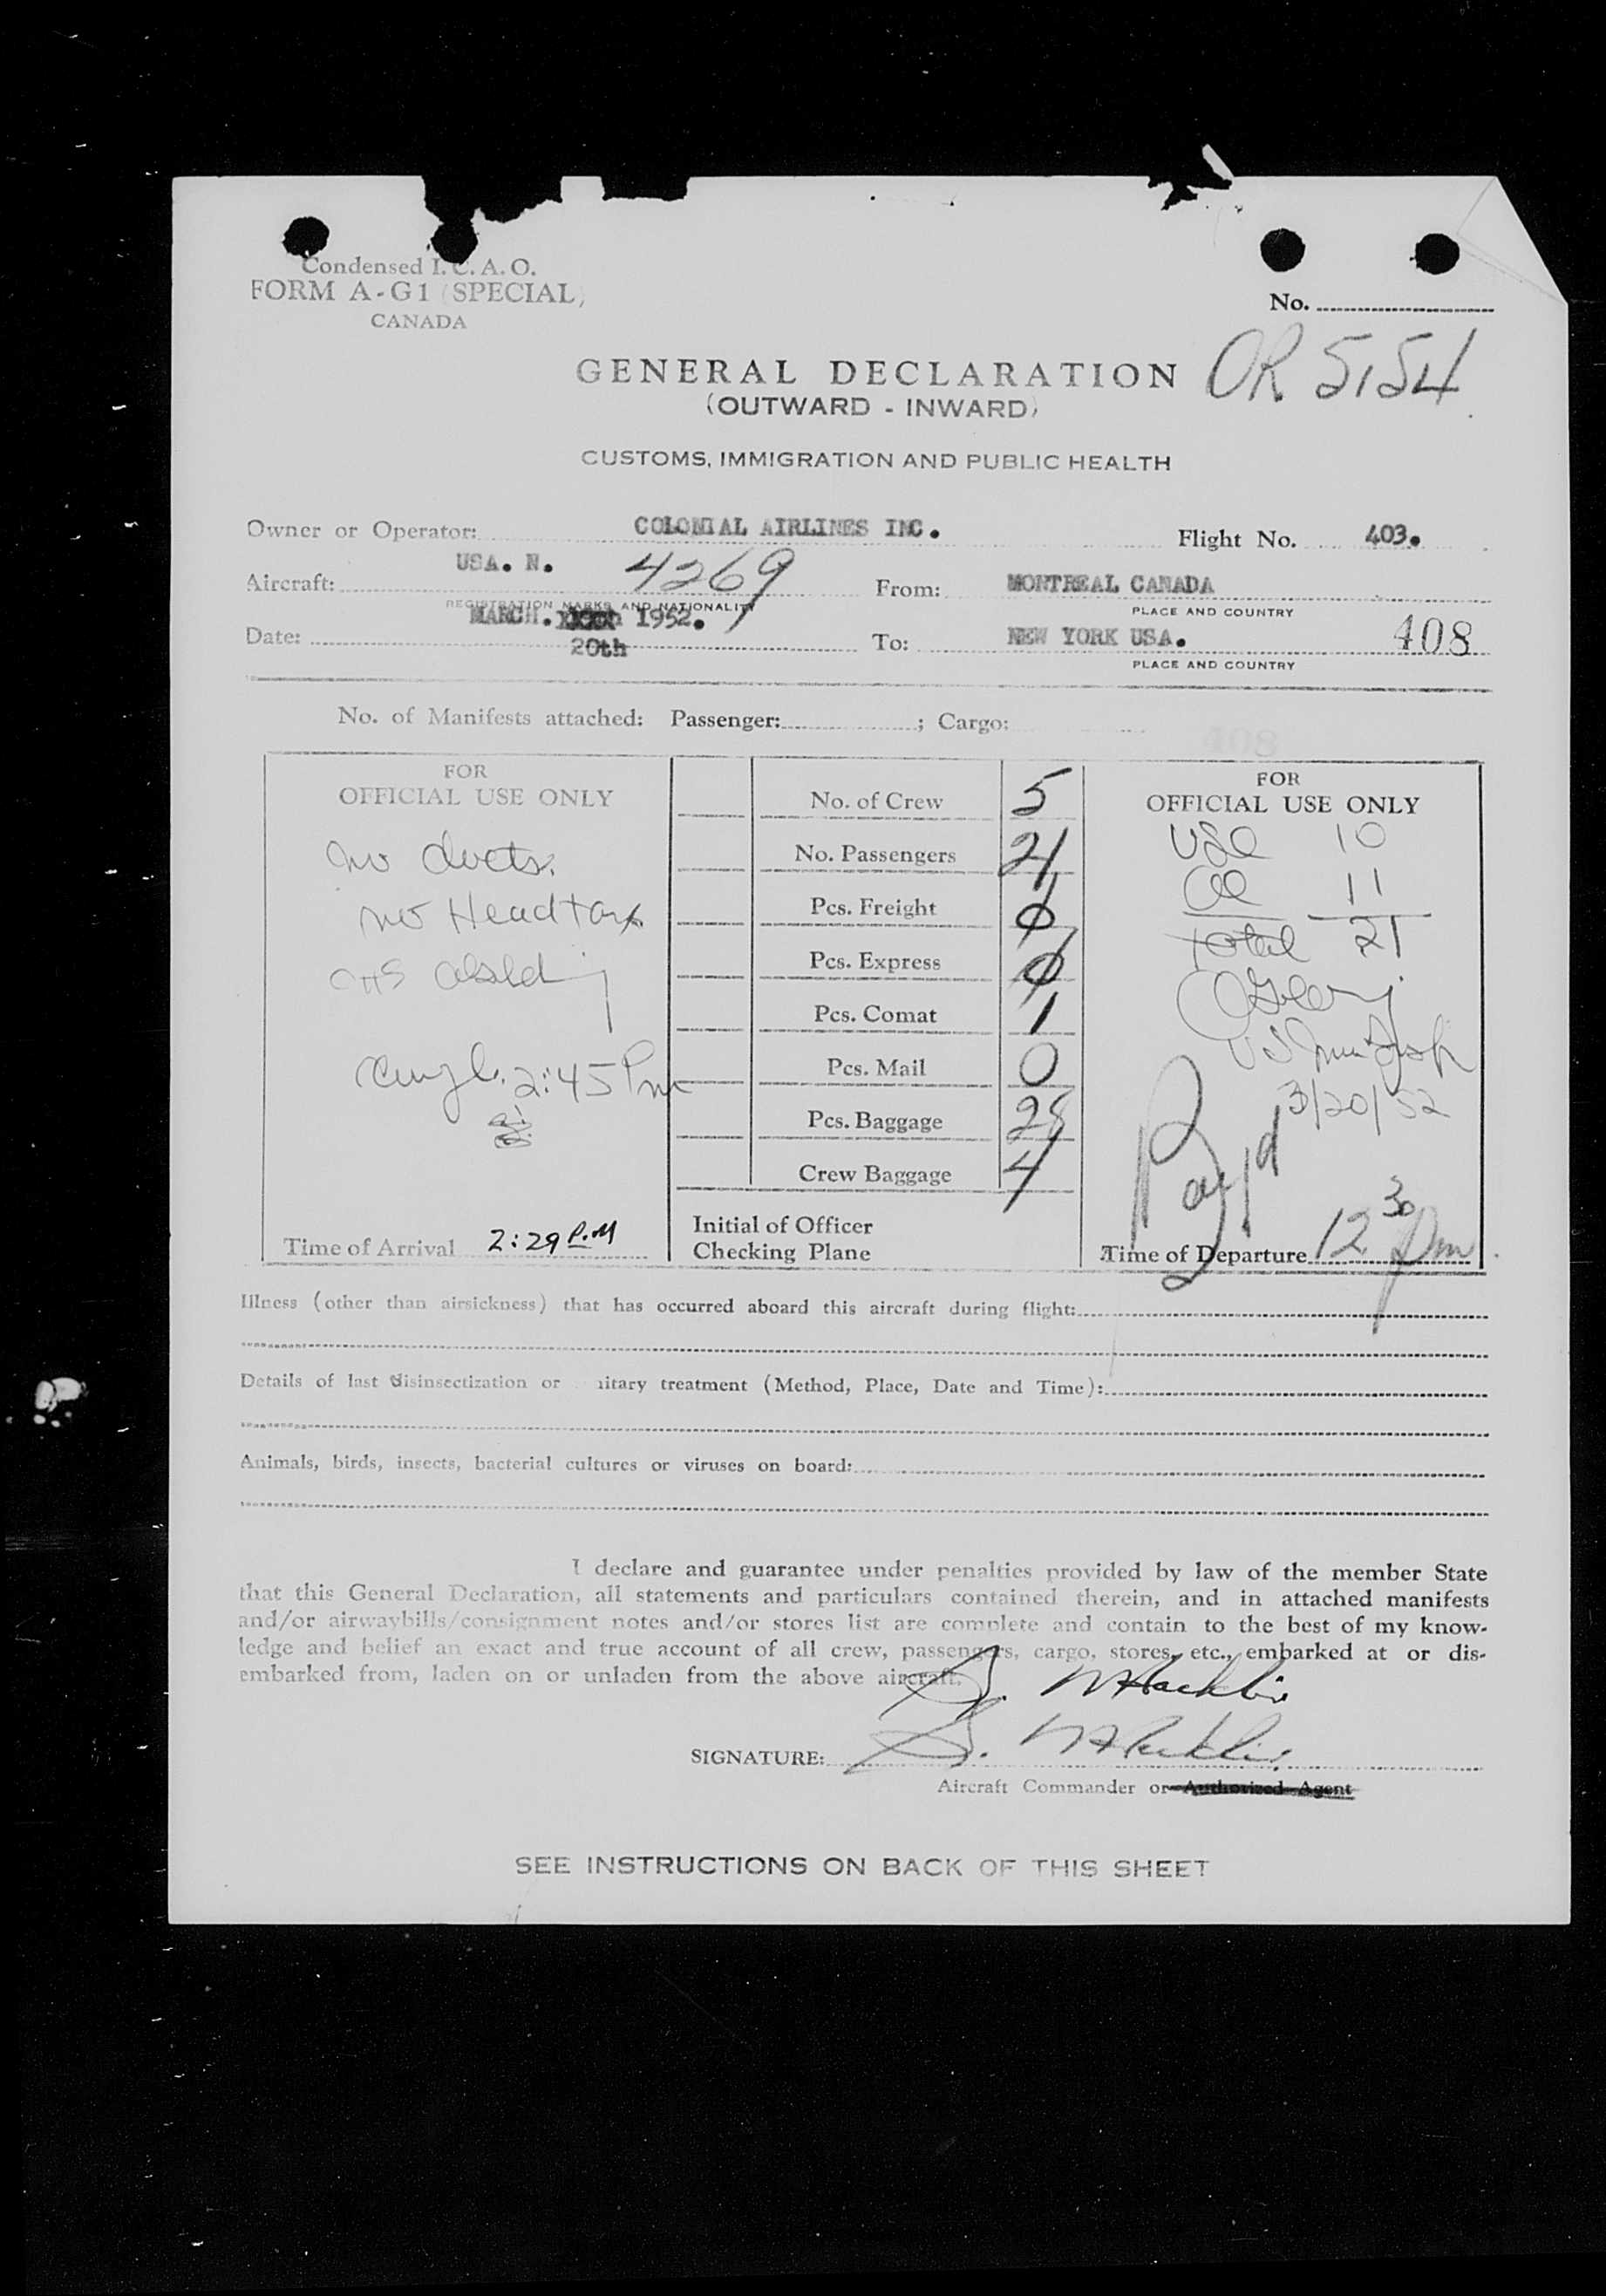 Condensed I. C. A. O.
FORM A-G1 (SPECIAL)
CANADA
No.
OR 5154
GENERAL DECLARATION
(OUTWARD - INWARD)
CUSTOMS, IMMIGRATION AND PUBLIC HEALTH
Owner or Operator: COLONIAL AIRLINES INC. Flight No. 403.
Aircraft: USA. N. 4269 From: MONTREAL CANADA
REGISTRATION MARKS AND NATIONALITY PLACE AND COUNTRY
Date: MARCH. 20th 1952. To: NEW YORK USA. 408
PLACE AND COUNTRY
No. of Manifests attached: Passenger: ; Cargo:
408
FOR
OFFICIAL USE ONLY
no docts.
no Headtax
2:45 Pm
Time of Arrival 2:29 P.M
No. of Crew 5
No. Passengers 21
Pcs. Freight 0
Pcs. Express 0
Pcs. Comat 1
Pcs. Mail 0
Pcs. Baggage 28
Crew Baggage 4
Initial of Officer
Checking Plane
FOR
OFFICIAL USE ONLY
USC 10
11
Total 21
3/20/52
Time of Departure 12 30 pm
Illness (other than airsickness) that has occurred aboard this aircraft during flight:
Details of last disinsectization or itary treatment (Method, Place, Date and Time):
Animals, birds, insects, bacterial cultures or viruses on board:
I declare and guarantee under penalties provided by law of the member State
that this General Declaration, all statements and particulars contained therein, and in attached manifests
and/or airwaybills/consignment notes and/or stores list are complete and contain to the best of my know-
ledge and belief an exact and true account of all crew, passengers, cargo, stores, etc., embarked at or dis-
embarked from, laden on or unladen from the above aircraft.
SIGNATURE:
Aircraft Commander or Authorized Agent
SEE INSTRUCTIONS ON BACK OF THIS SHEET